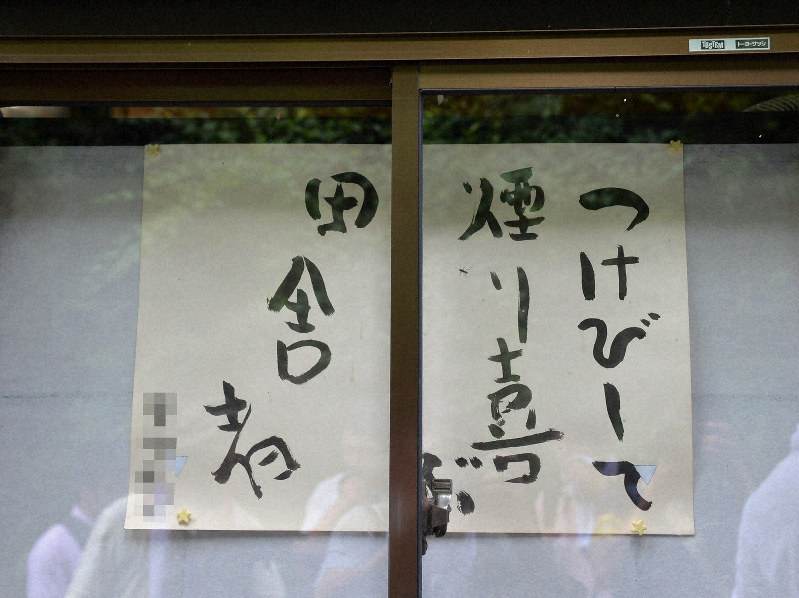 TOSTEM トーヨーサッシ
つけびして
煙り喜ぶ
田舎者